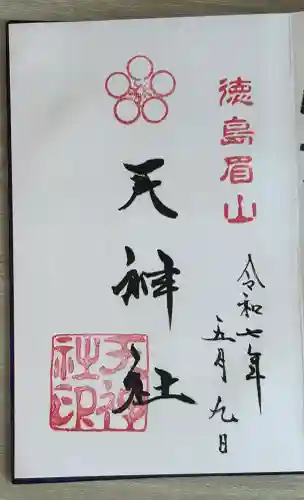 徳島眉山
天神社
令和七年
五月九日
天神社印